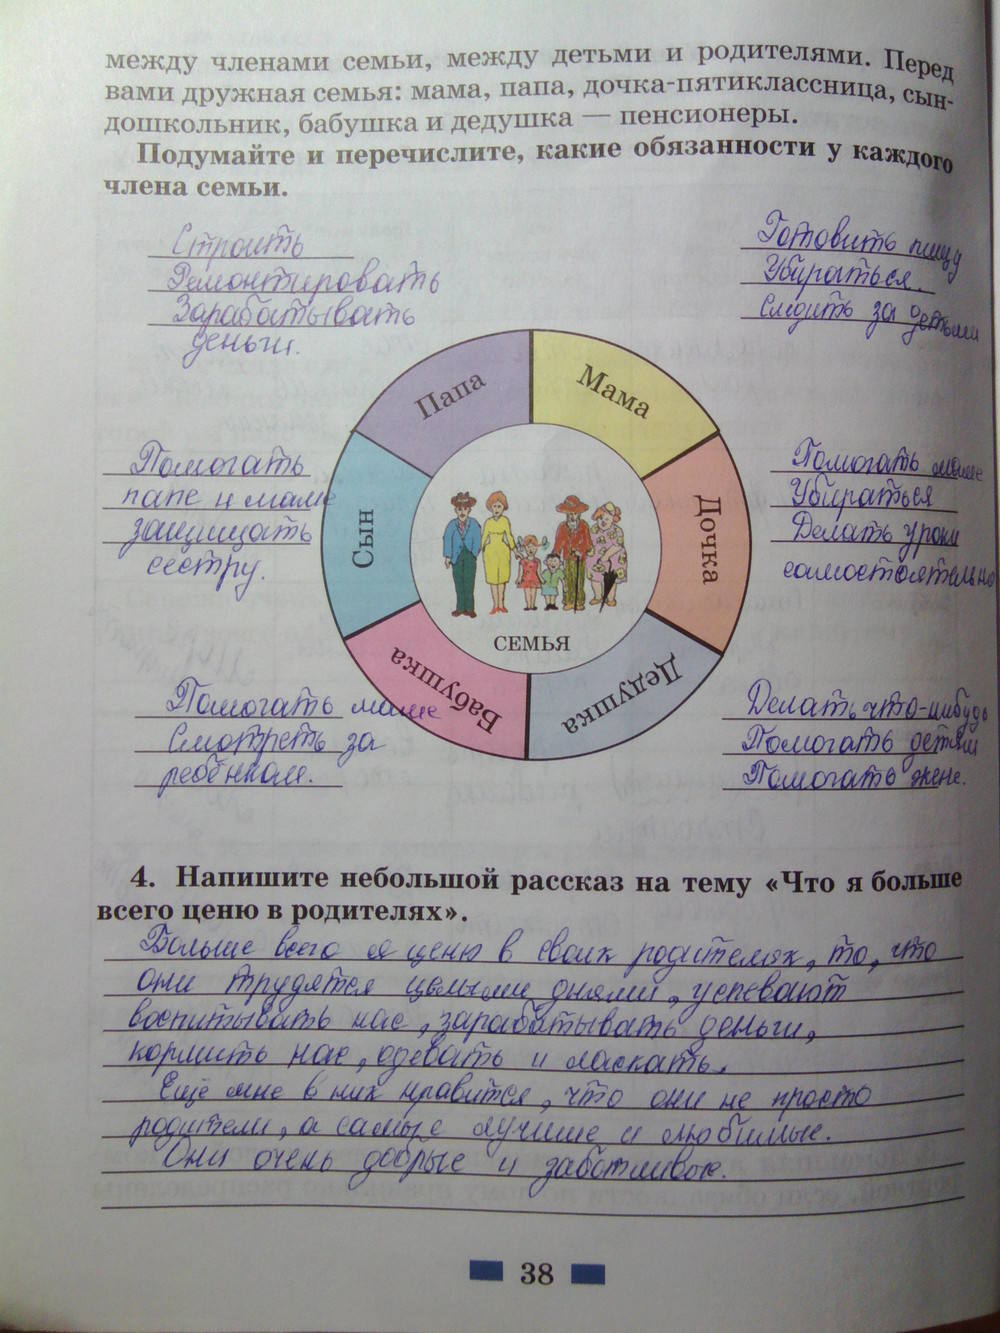 между членами семьи, между детьми и родителями. Перед
вами дружная семья: мама, папа, дочка-пятиклассница, сын-
дошкольник, бабушка и дедушка — пенсионеры.
Подумайте и перечислите, какие обязанности у каждого
члена семьи.
Строить
Ремонтировать
Зарабатывать
деньги.
Готовить пищу
Убираться.
Следить за детьми
Папа
Мама
Помогать
папе и маме
защищать
сестру.
Сын
Дочка
Помогать маме
Убираться
Делать уроки
самостоятельно
СЕМЬЯ
Помогать маме
Смотреть за
ребёнком.
Бабушка
Дедушка
Делать что-нибудь
Помогать детям
Помогать жене.
4. Напишите небольшой рассказ на тему «Что я больше
всего ценю в родителях».
Больше всего я ценю в своих родителях, то, что
они трудятся целыми днями, успевают
воспитывать нас, зарабатывать деньги,
кормить нас, одевать и ласкать.
Ещё мне в них нравится, что они не просто
родители, а самые лучшие и любимые.
Они очень добрые и заботливые.
38